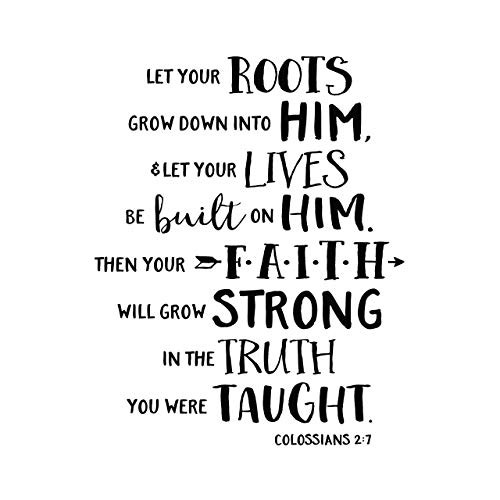 LET YOUR ROOTS
GROW DOWN INTO HIM,
& LET YOUR LIVES
BE built ON HIM.
THEN YOUR F·A·I·T·H
WILL GROW STRONG
IN THE TRUTH
YOU WERE TAUGHT.
COLOSSIANS 2:7